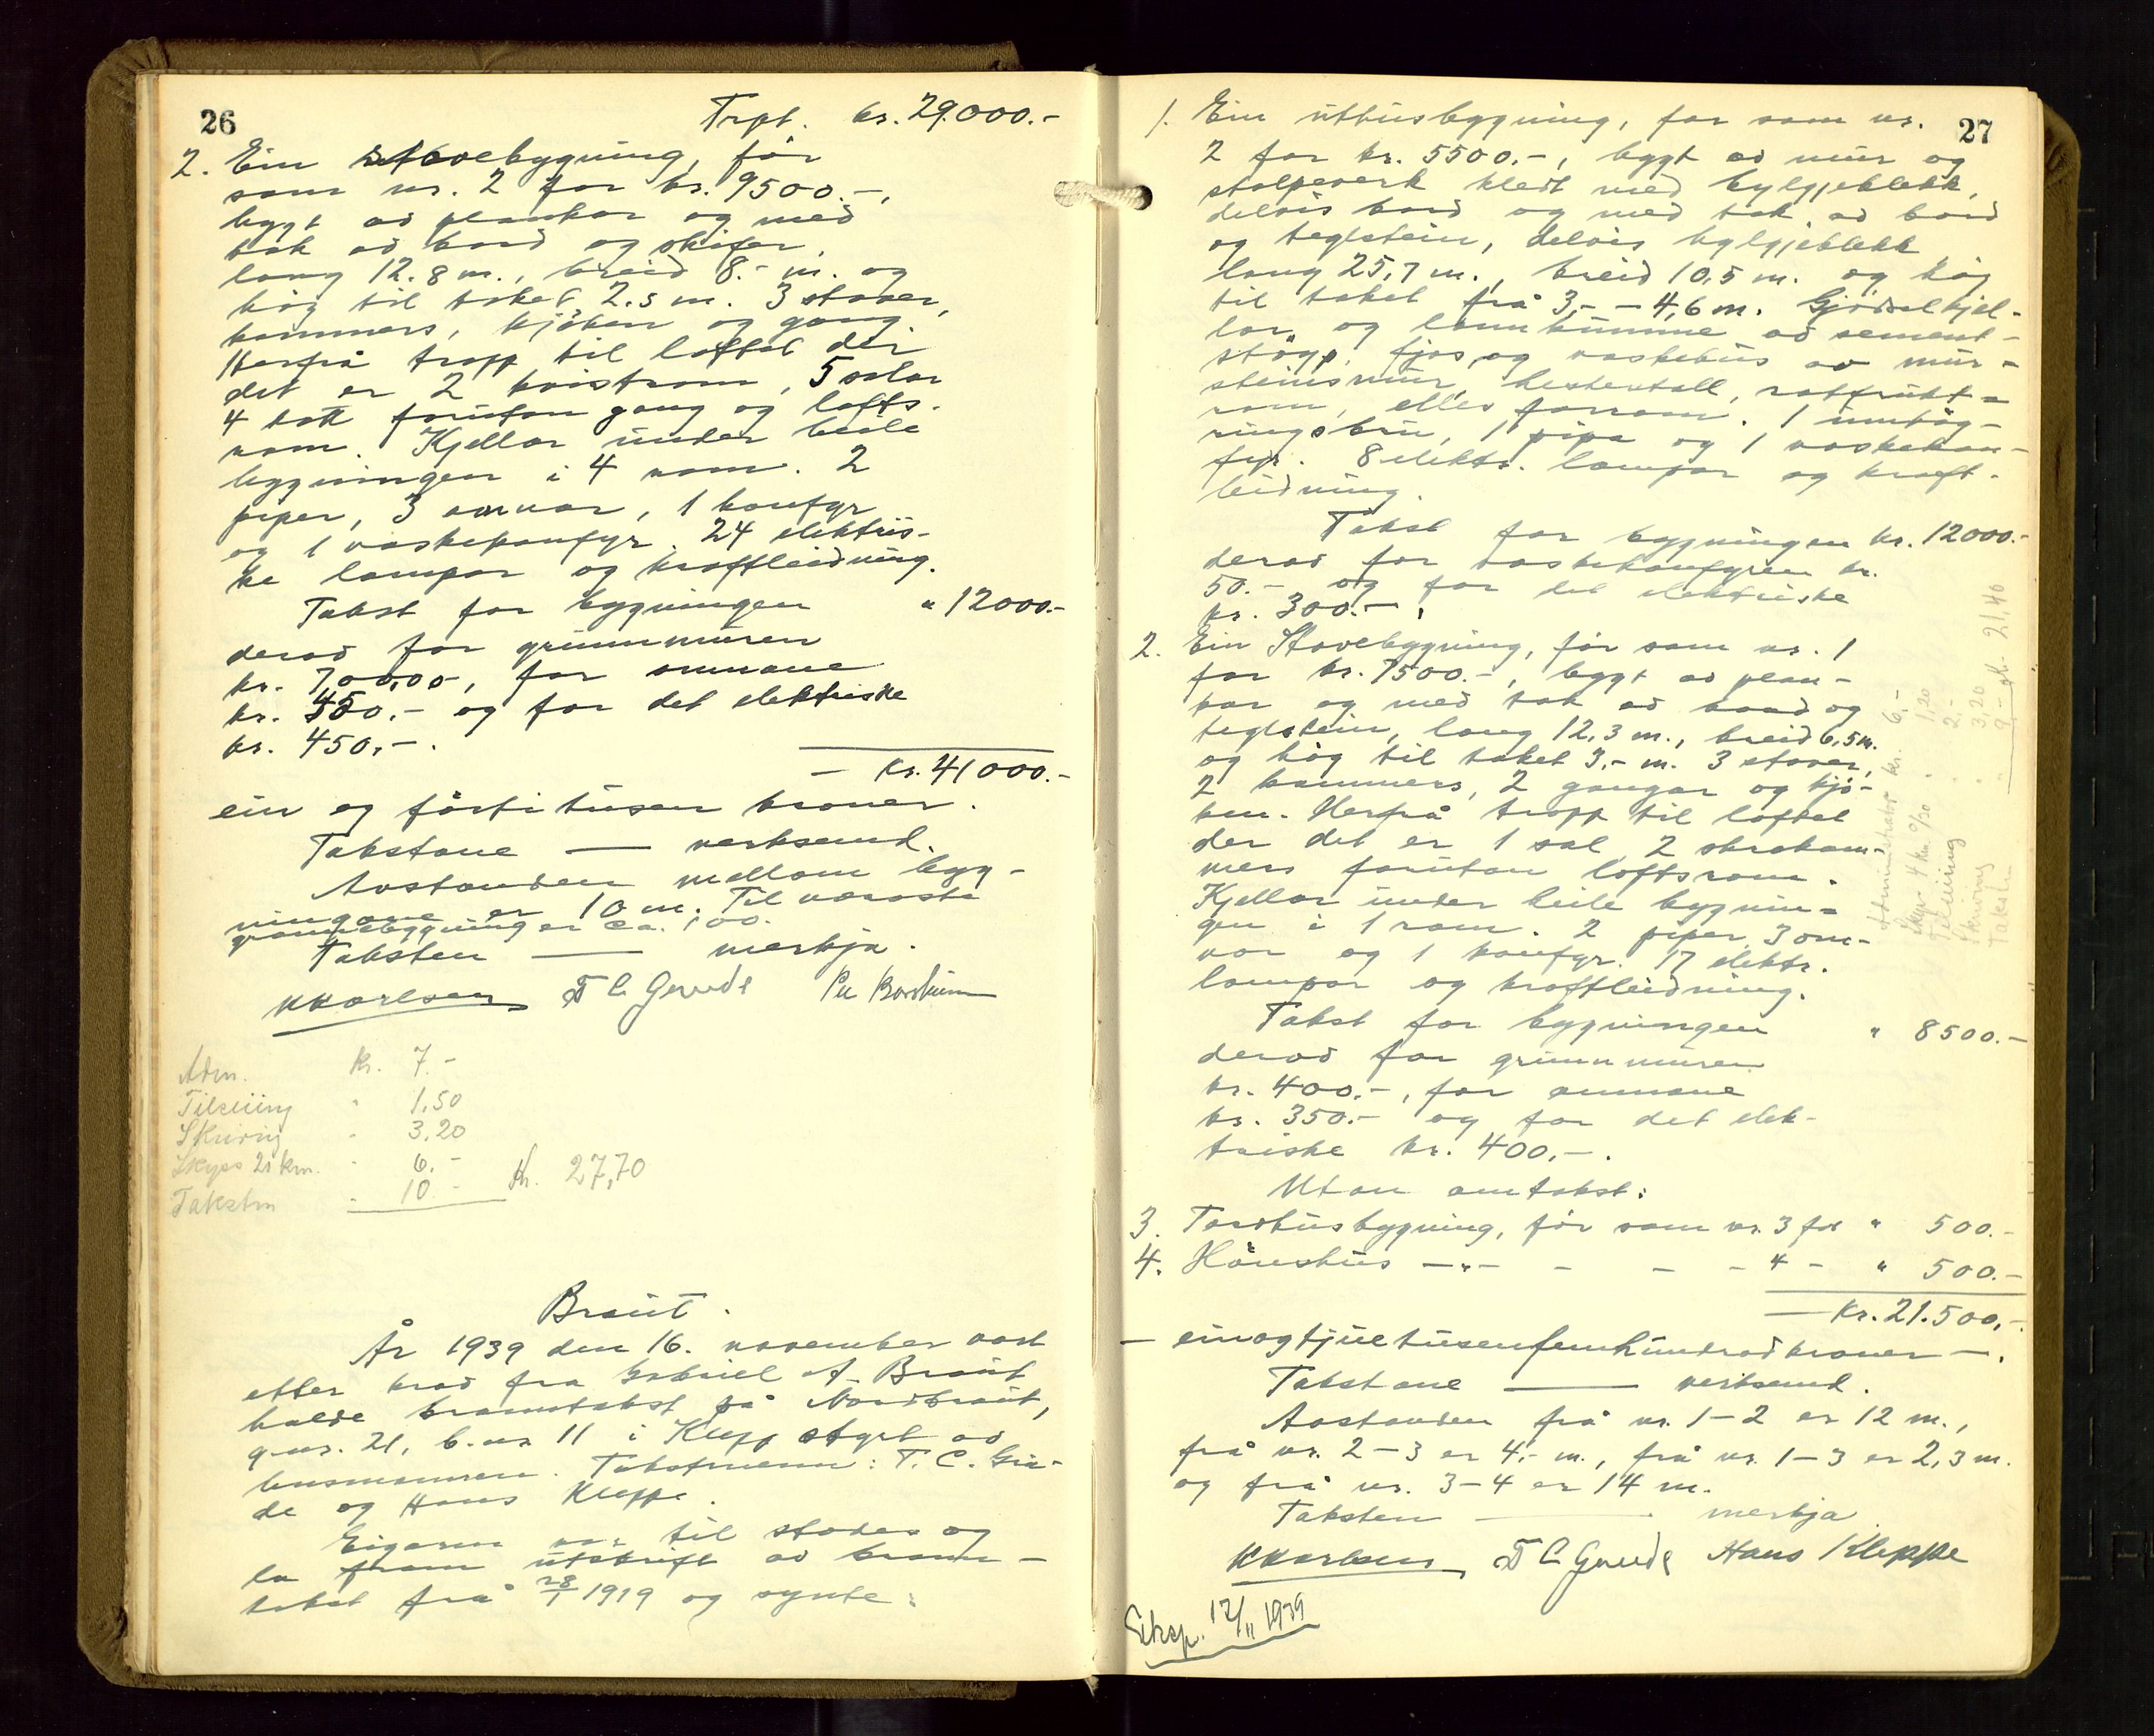 26
Trpt. kr. 29.000.-
2. Ein stovebygning, før
som nr. 2 for kr. 9500.-,
bygt av plankar og med
tak av bord og skifer,
lang 12.8 m., breid 8.- m. og
høg til taket 2.5 m. 3 stover,
kammers, kjöken og gang.
Herfrå tropp til loftet der
det er 2 kvistrom, 5 salar
4 kott forutan gang og lofts-
rom. Kjellar under heile
bygningen i 4 rom. 2
piper, 3 omnar, 1 komfyr
og 1 vaskepanfyr. 24 elektris-
ke lampor og kraftleidning.
Takst for bygningen " 12000.-
derav for grunnmuren
kr. 700,00, for omnane
kr. 450.- og for det elektriske
kr. 450,-.
— Kr. 41000.-
ein og førti tusen kroner.
Takstane — verksemd.
Avstanden mellom byg-
ningane er 10 m. Til næraste
grannebygning er ca. 100.
Taksten — merkja.
KKarlsen T C Gruda
Adm. Kr. 7.-
Tilseiing " 1,50
Skriving " 3,20
Skyss 20 km. " 6.-
Takstm " 10.- Kr. 27,70
Braut.
År 1939 den 16. november vart
etter krav fra Gabriel A. Braut
halde branntakst på Nordbraut,
g.nr. 21, b.nr 11 i Klepp styrt av
lensmannen. Takstmenn: T. C. Gru-
de og Hans Kleppe.
Eigaren var til stades og
la fram utskrift av brann-
takst frå 1919 og synte:
27
1. Ein uthusbygning, før som nr.
2 for kr. 5500.-, bygt av mur og
stolpeverk kledt med bylgjeblekk,
delvis bord og med tak av bord
og teglstein, delvis bylgjeblekk
lang 25,7 m., breid 10,5 m. og høg
til taket frå 3,- - 4,6 m. Gjødselkjel-
lar og landkumme av sement-
støyp, fjos og vaskehus av mur-
steinsmur, hestestall, rotfrukt-
rom, elles forrom. 1 innkøy-
ringsbru, 1 pipa og 1 vaskekon-
fyr. 8 elektr. lampor og kraft-
leidning.
Takst for bygningen kr. 12000.-
derav for vaskekonfyren kr.
50.- og for det elektriske
kr. 300.-.
2. Ein Stovebygning, før som nr. 1
for kr. 7500.-, bygt av plan-
kar og med tak av bord og
teglstein, lang 12,3 m., breid 6,5 m.
og høg til taket 3,- m. 3 stover,
2 kammers, 2 gangar og kjö-
ken. Herfrå tropp til loftet
der det er 1 sal 2 skrakam-
mers forutan loftsrom.
Kjellar under heile bygnin-
gen i 1 rom. 2 piper, 3 om-
nar og 1 konfyr. 17 elektr.
lampor og kraftleidning.
Takst for bygningen " 8500.-
derav for grunnmuren
kr. 400.-, for omnane
kr. 350.- og for det elek-
triske kr. 400,-.
Utan omtakst:
3. Torvhusbygning, før som nr. 3 for " 500.-
4. Hönsehus —"— - - - 4 - " 500.-
— Kr. 21.500,-
— einogtjuetusenfemhundradkroner —.
Takstane — verksemd.
Avstanden frå nr. 1-2 er 12 m.,
frå nr. 2-3 er 4,- m., frå nr. 1-3 er 2,3 m.
og frå nr. 3-4 er 14 m.
Taksten — merkja
KKarlsen T C Gruda Hans Kleppe
Eksp. 17/11 1939
Administrasjon kr. 6.-
Skyss 4 km " 1,20
Tilseiing " 2,-
Skriving " 3,20
Takstm " 9.- 21,40